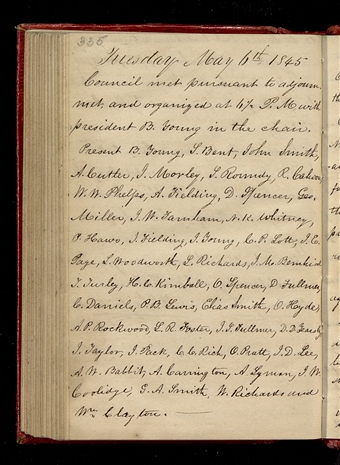 335
Tuesday May 6th 1845
Council met pursuant to adjourn
ment, and organized at P. M. with
president B. Young in the chair.
Present B. Young, S. Bent, John Smith,
A. Cutler, I. Morley, S. Roundy, R. Cahoon
W. W. Phelps, A. Fielding, D. Spencer, Geo.
Miller, J. W. Farnham, N. K. Whitney,
P. Haws, J. Fielding, J. Young, C. P. Lott, J. C.
Page, S. Woodworth, L. Richards, J. M. Bernhisel
T. Turley, H. C. Kimball, O. Spencer, D. Fullmer,
C. Daniels, P. B. Lewis, Elias Smith, O. Hyde,
A. P. Rockwood, L. R. Foster, J. S. Fullmer, D. D.
J. Taylor, J. Pack, C. C. Rich, O. Pratt, J. D. Lee,
A. W. Babbitt, A. Carrington, A. Lyman, J. W.
Coolidge, G. A. Smith, W. Richards and
Wm Clayton.